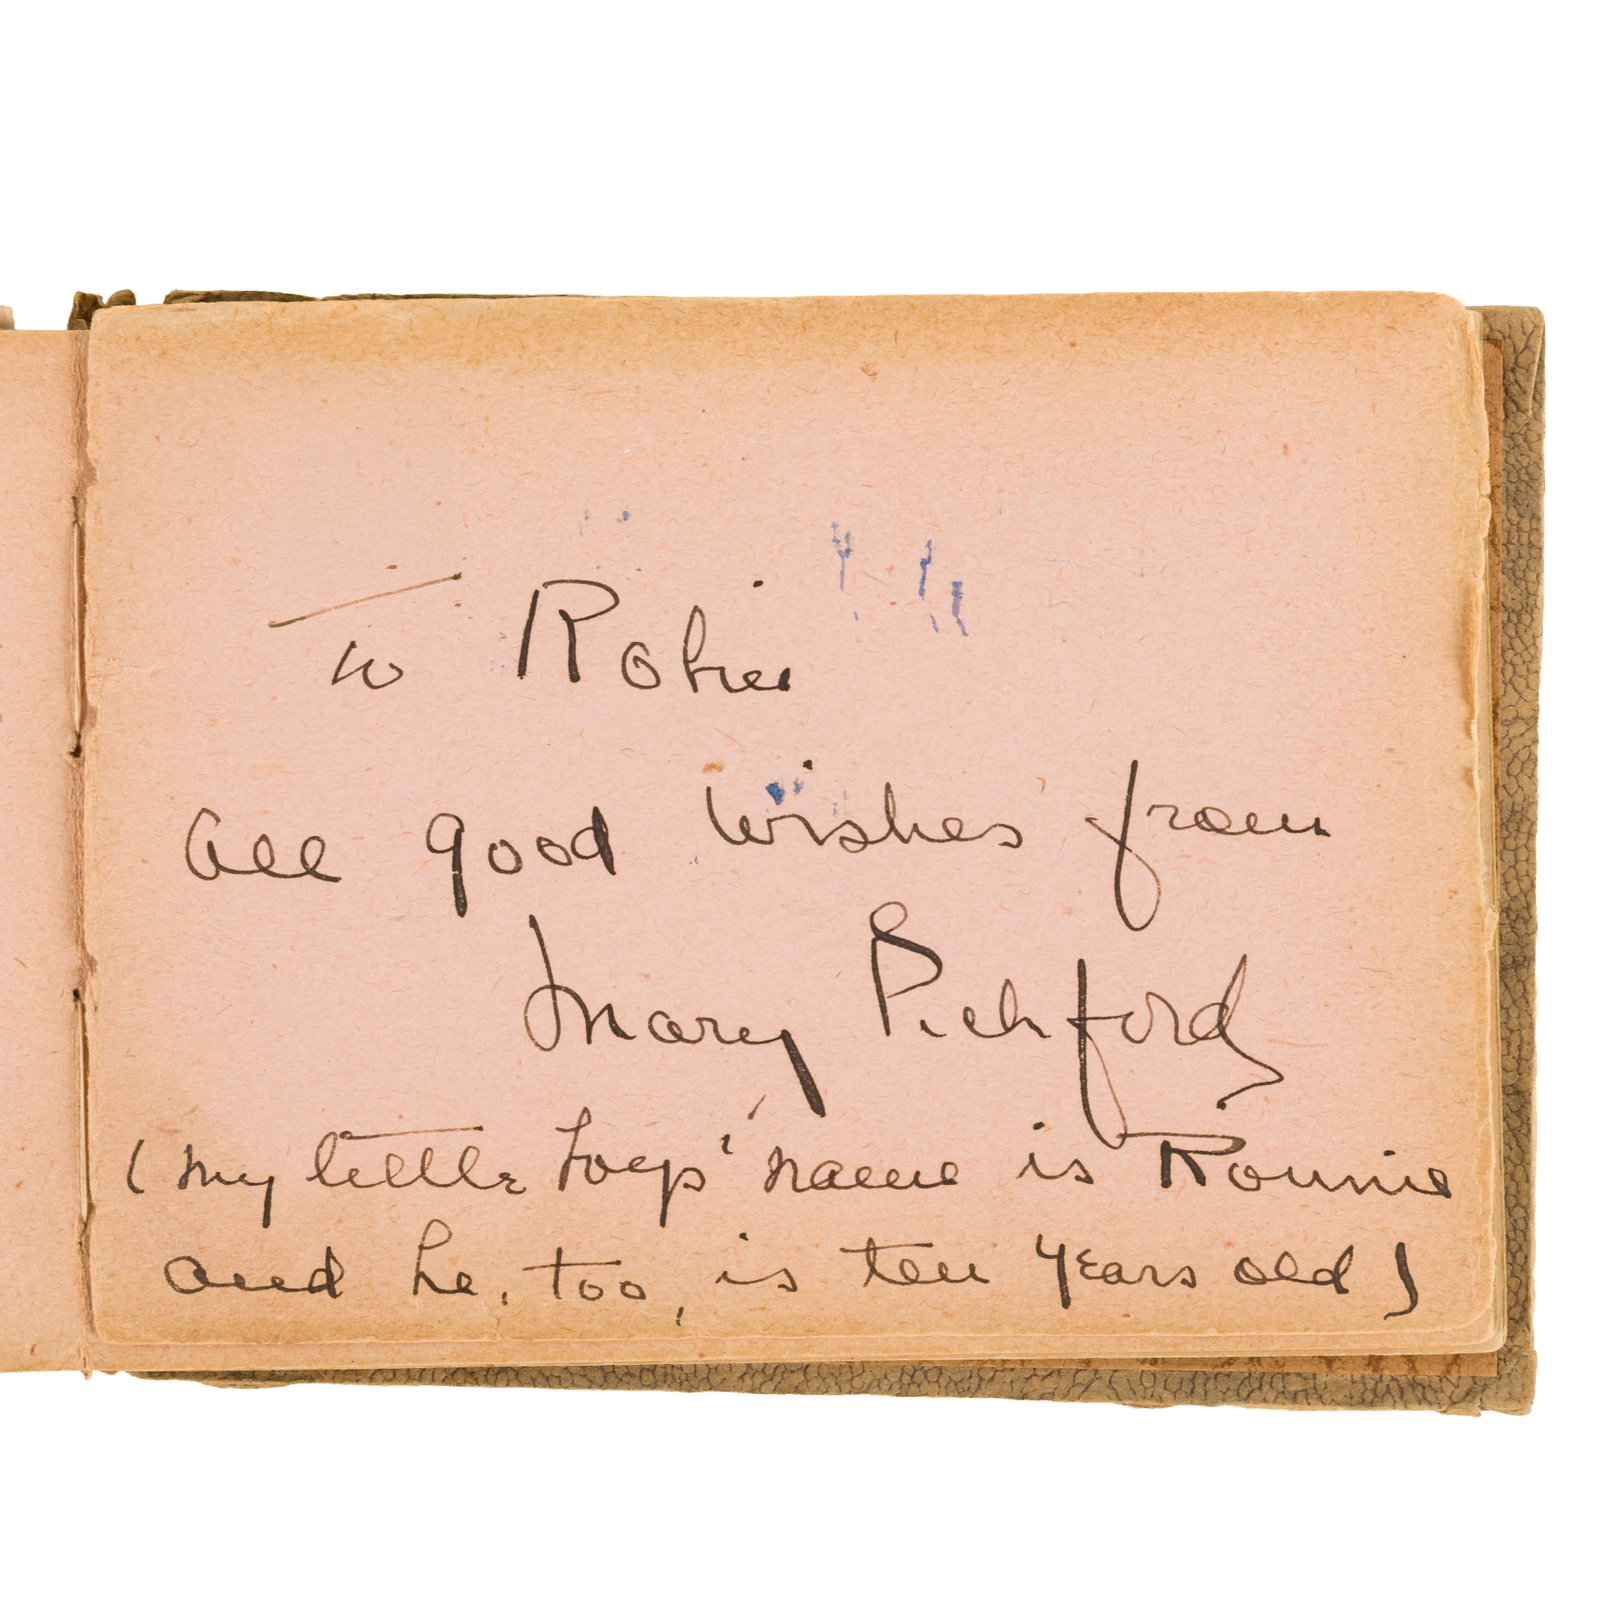 To Robin
all good wishes from
Mary Pickford
(my little boys' name is Ronnie
and he, too, is ten years old)